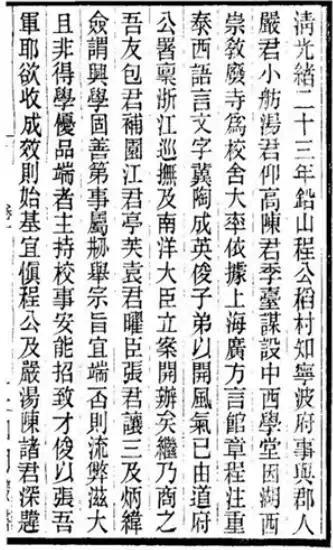 清光緒二十三年鉛山程公稻村知寧波府事與郡人
嚴君小舫湯君仰高陳君季臺謀設中西學堂因湖西
崇敎廢寺爲校舍大率依據上海廣方言館章程注重
泰西語言文字冀陶成英俊子弟以開風氣已由道府
公署稟浙江巡撫及南洋大臣立案開辦矣繼乃商之
吾友包君補園江君亭芙袁君曜臣張君讓三及炳緯
僉謂興學固善第事屬刱舉宗旨宜端否則流弊滋大
且非得學優品端者主持校事安能招致才俊以張吾
軍耶欲收成效則始基宜愼程公及嚴湯陳諸君深韙